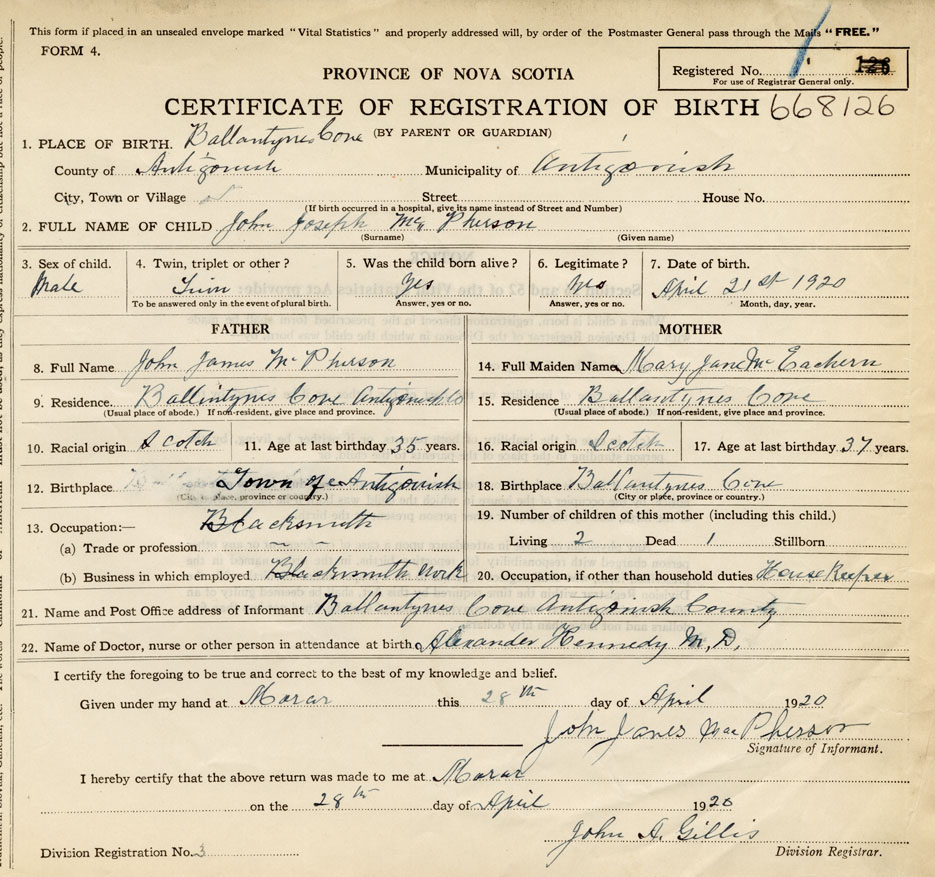 This form if placed in an unsealed envelope marked "Vital Statistics" and properly addressed will, by order of the Postmaster General pass through the Mails "FREE."
FORM 4.
PROVINCE OF NOVA SCOTIA
Registered No. 126
For use of Registrar General only.
CERTIFICATE OF REGISTRATION OF BIRTH 668126
(BY PARENT OR GUARDIAN)
1. PLACE OF BIRTH. Ballantynes Cove
County of Antigonish Municipality of Antigonish
City, Town or Village Street House No.
(If birth occurred in a hospital, give its name instead of Street and Number)
2. FULL NAME OF CHILD John Joseph Mc Pherson
(Surname) (Given name)
3. Sex of child. 4. Twin, triplet or other? 5. Was the child born alive? 6. Legitimate? 7. Date of birth.
Male Twin Yes Yes April 21st 1920
To be answered only in the event of plural birth. Answer, yes or no. Answer, yes or no. Month, day, year.
FATHER
8. Full Name John James Mc Pherson
9. Residence. Ballintynes Cove Antigonish Co
(Usual place of abode.) If non-resident, give place and province.
10. Racial origin Scotch 11. Age at last birthday 35 years.
12. Birthplace Town of Antigonish
(City or place, province or country.)
13. Occupation:— Blacksmith
(a) Trade or profession
(b) Business in which employed Blacksmith work
MOTHER
14. Full Maiden Name Mary Jane Mc Eachern
15. Residence Ballantynes Cove
(Usual place of abode.) If non-resident, give place and province.
16. Racial origin Scotch 17. Age at last birthday 37 years.
18. Birthplace Ballantynes Cove
(City or place, province or country.)
19. Number of children of this mother (including this child.)
Living 2 Dead 1 Stillborn
20. Occupation, if other than household duties House Keeper
21. Name and Post Office address of Informant Ballantynes Cove Antigonish County
22. Name of Doctor, nurse or other person in attendance at birth Alexander Kennedy M.D.
I certify the foregoing to be true and correct to the best of my knowledge and belief.
Given under my hand at Morar this 28th day of April 1920
John James MacPherson
Signature of Informant.
I hereby certify that the above return was made to me at Morar
on the 28th day of April 1920
John A. Gillis
Division Registration No. 3 Division Registrar.